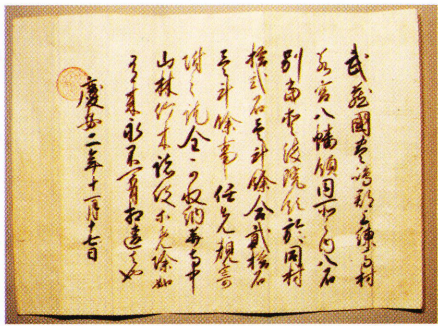 武蔵國豊嶋郡上練馬村
若宮八幡領同所之内八石
別當愛染院領於同村
拾貳石壹斗餘合貳拾石
壹斗餘事任先規寄
附之訖全可収納并寺中
山林竹木諸役等免除如
有来永不可有相違者也
慶安二年十一月十七日